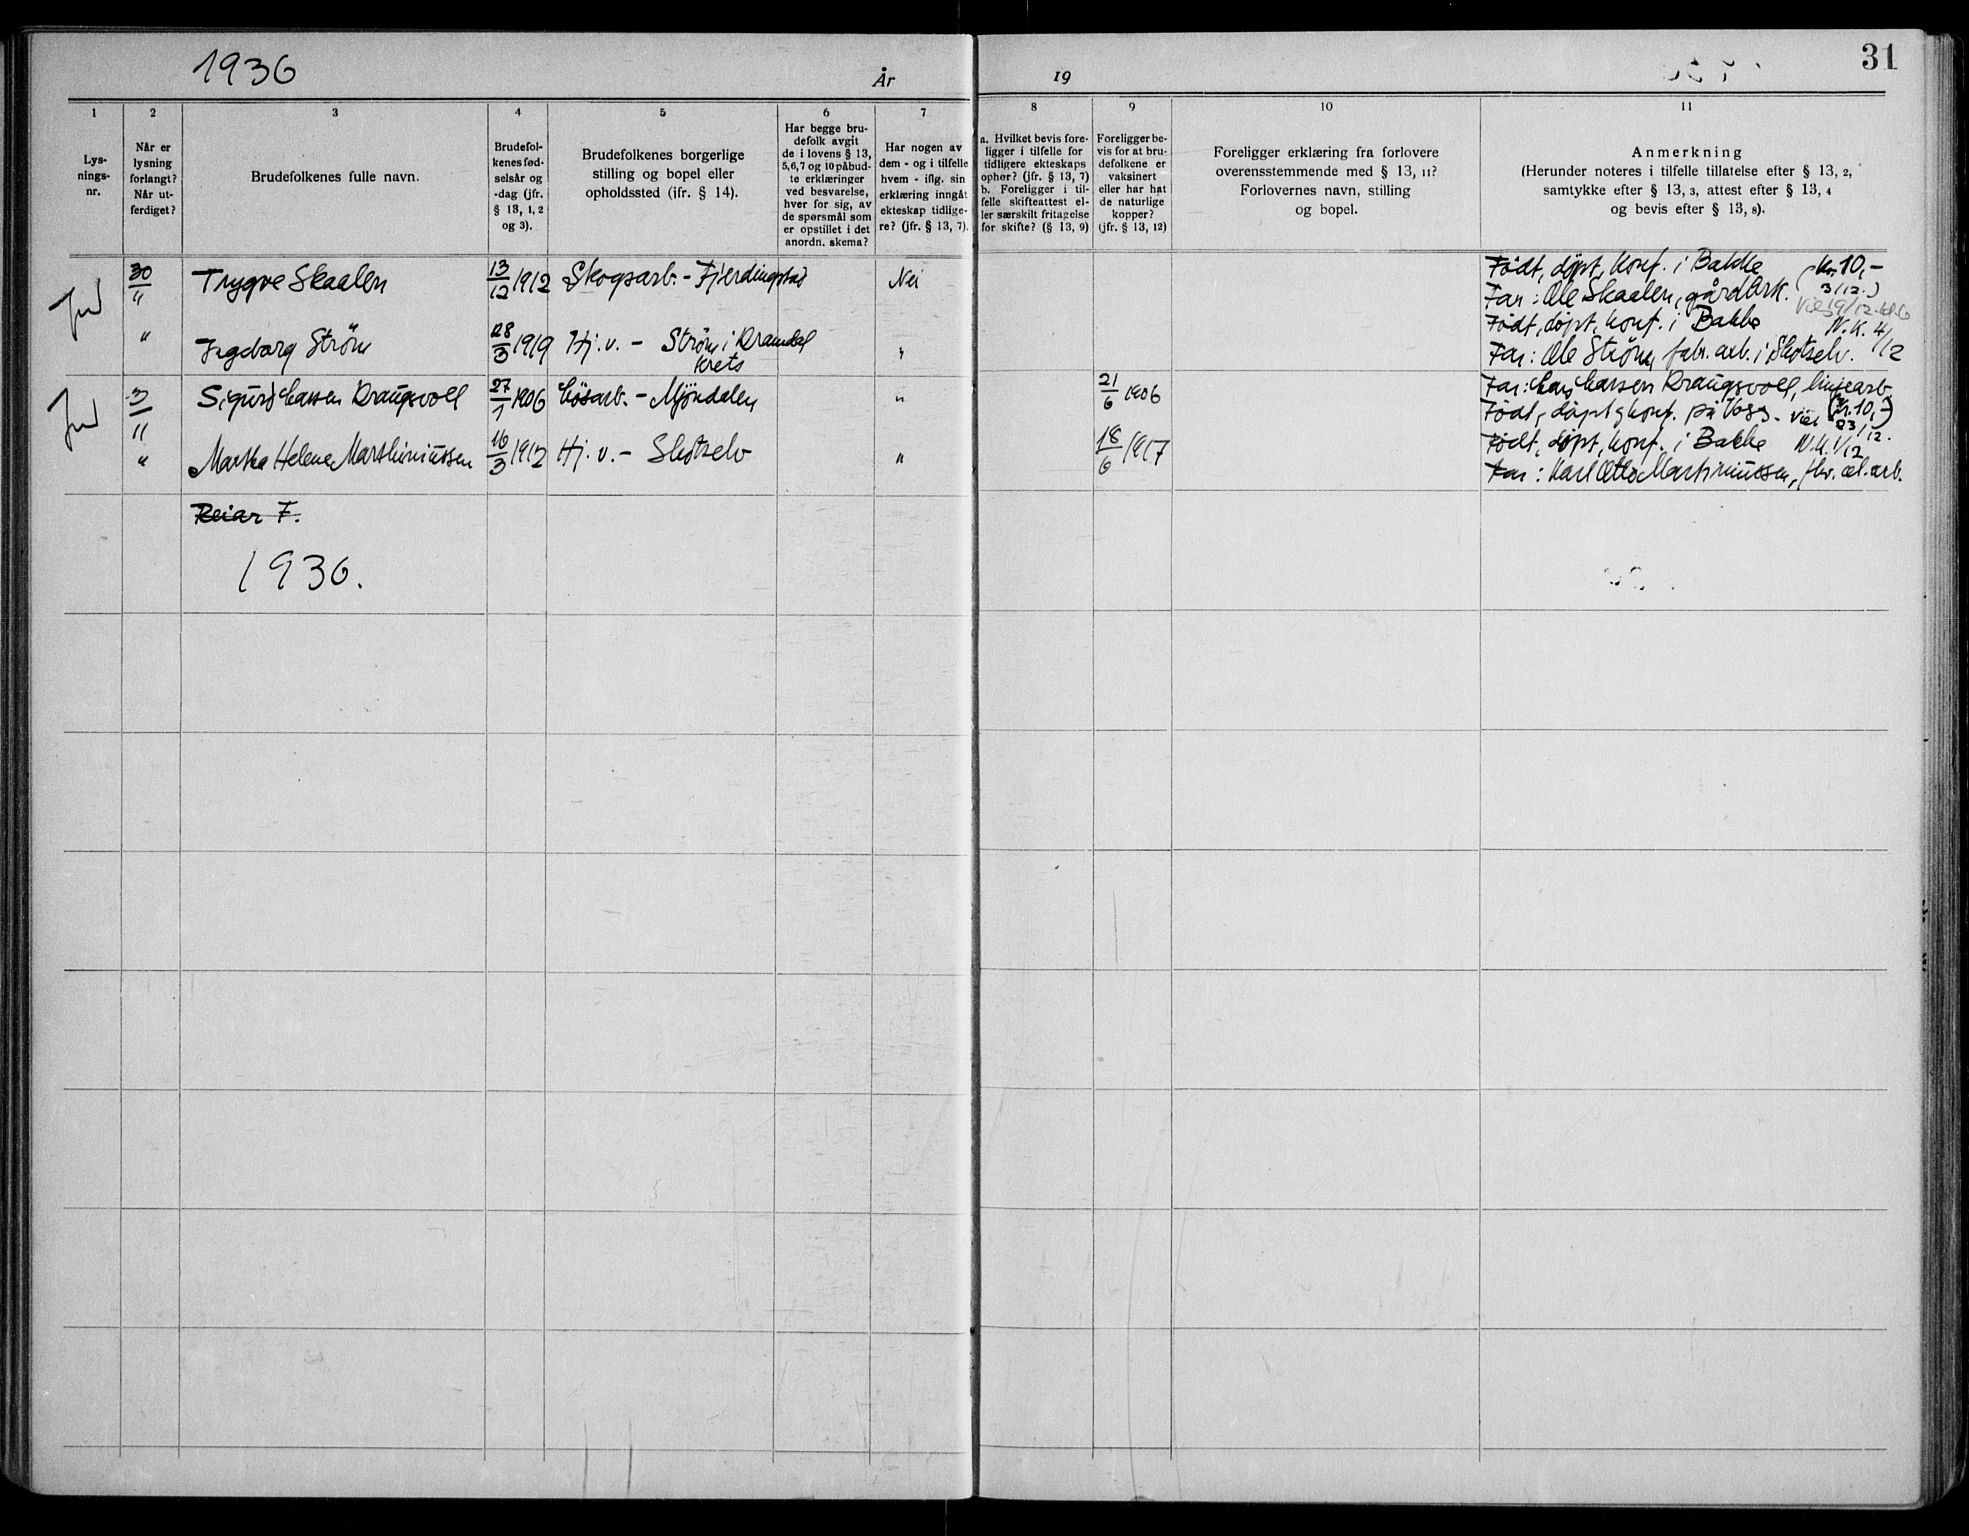 1936
År
19
31
1
2
3
4
5
6
7
8
9
10
11
Lys-
nings-
nr.
Når er
lysning
forlangt?
Når ut-
ferdiget?
Brudefolkenes fulle navn.
Brudefol-
kenes fød-
selsår og
-dag (jfr.
§ 13, 1, 2
og 3).
Brudefolkenes borgerlige
stilling og bopel eller
opholdssted (jfr. § 14).
Har begge bru-
defolk avgit
de i lovens § 13,
5,6,7 og 10 påbud-
te erklæringer
ved besvarelse,
hver for sig, av
de spørsmål som
er opstillet i det
anordn. skema?
Har nogen av
dem - og i tilfelle
hvem - iflg. sin
erklæring inngåt
ekteskap tidlige-
re? (jfr. § 13, 7).
a. Hvilket bevis fore-
ligger i tilfelle for
tidligere ekteskaps
ophør? (jfr. § 13, 7)
b. Foreligger i til-
felle skifteattest el-
ler særskilt fritagelse
for skifte? (§ 13, 9)
Foreligger be-
vis for at bru-
defolkene er
vaksinert
eller har hat
de naturlige
kopper?
(jfr. § 13, 12)
Foreligger erklæring fra forlovere
overensstemmende med § 13, 11?
Forlovernes navn, stilling
og bopel.
Anmerkning
(Herunder noteres i tilfelle tillatelse efter § 13, 2,
samtykke efter § 13, 3, attest efter § 13, 4
og bevis efter § 13, 8).
30/11 Trygve Skaalen 13/12 1912 Skogsarb. - Fjerdingstad Nei
Født, døpt, konf. i Bakke (Kr. 10,-
Far: Ole Skaalen, gårdbrk. 3/12.)
" Ingeborg Strøm 28/3 1919 Hj.v. - Strøm i Dramdal "
krets
Født, døpt, konf. i Bakke N.K. 4/12
Far: Ole Strøm, fabr.arb. i Skotselv.
3/11 Sigurd Larsen Draugsvoll 27/1 1906 Løsarb. - Mjøndalen " 21/6 1906
Far: Lars Larsen Draugsvoll, linjearb.
Født, døpt og konf. på Voss. Viet 23/12. (Kr. 10,-)
" Martha Helene Marthiniussen 16/3 1912 Hj.v. - Skotselv " 18/6 1917
Født, døpt, konf. i Bakke N.K. 1/12
Far: Karl Otto Martiniussen, fhv. cel.arb.
Reiar F.
1936.